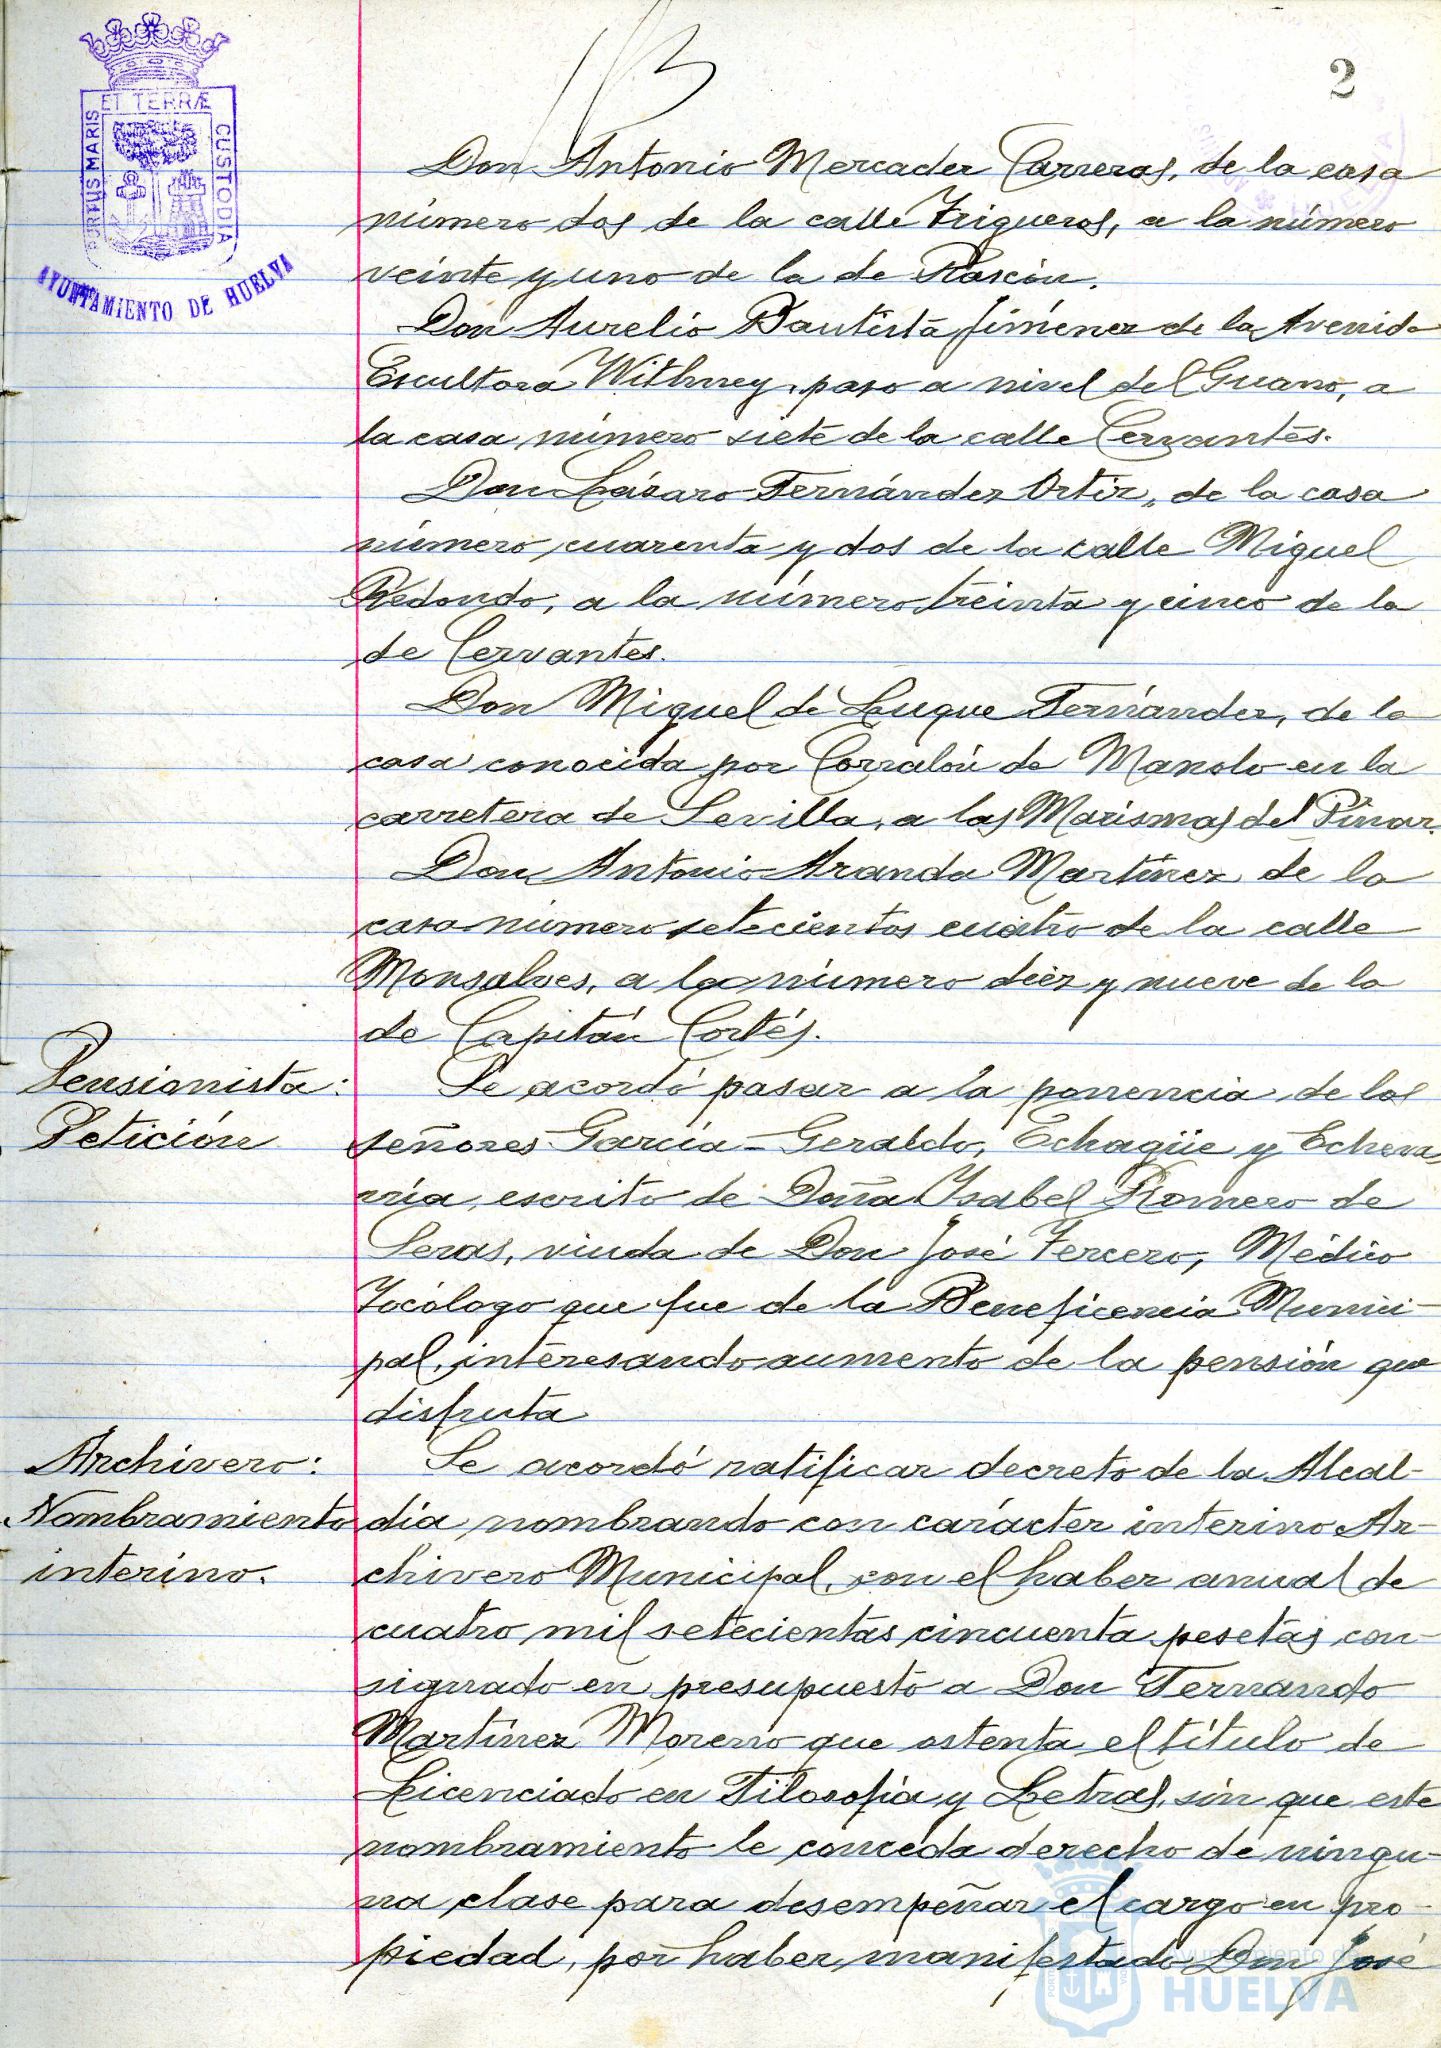 2
PORTUS MARIS ET TERRÆ CUSTODIA
AYUNTAMIENTO DE HUELVA
Don Antonio Mercader Carreras, de la casa
número dos de la calle Trigueros, a la número
veinte y uno de la de Rascón.
Don Aurelio Bautista Jiménez de la Avenida
Escultora Withney, paso a nivel del Guano, a
la casa número siete de la calle Cervantes.
Don Lázaro Fernández Ortiz, de la casa
número cuarenta y dos de la calle Miguel
Redondo, a la número treinta y cinco de la
de Cervantes.
Don Miguel de Luque Fernández, de la
casa conocida por Corralón de Manolo en la
carretera de Sevilla, a las Marismas del Pinar.
Don Antonio Aranda Martínez de la
casa número setecientos cuatro de la calle
Monsalves, a la número diez y nueve de la
de Capitán Cortés.
Pensionista:
Petición
Se acordó pasar a la ponencia de los
señores García-Geraldo, Echagüe y Echeva-
rría, escrito de Doña Ysabel Romero de
Seras, viuda de Don José Tercero, Médico
Tocólogo que fue de la Beneficencia Munici-
pal, interesando aumento de la pensión que
disfruta
Archivero:
Nombramiento
interino.
Se acordó ratificar decreto de la Alcal-
día nombrando con carácter interino Ar-
chivero Municipal, con el haber anual de
cuatro mil setecientas cincuenta pesetas con-
signado en presupuesto a Don Fernando
Martínez Moreno que ostenta el título de
Licenciado en Filosofía y Letras, sin que este
nombramiento le conceda derecho de ningu-
na clase para desempeñar el cargo en pro-
piedad, por haber manifestado Don José
Ayuntamiento de
HUELVA